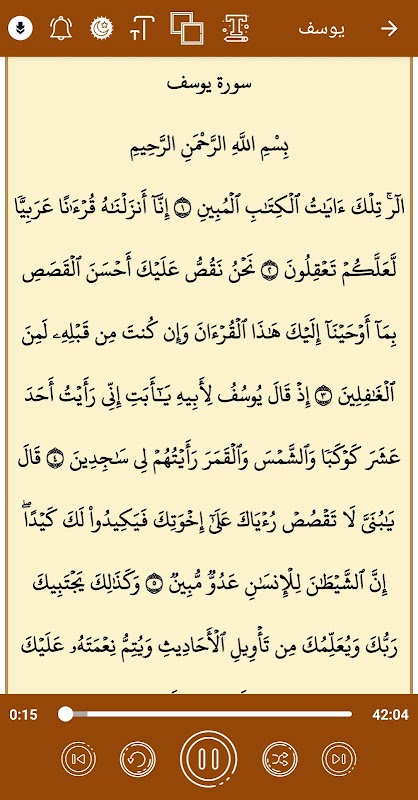 يوسف
سورة يوسف
بِسْمِ اللَّهِ الرَّحْمَنِ الرَّحِيمِ
الٓرۚ تِلۡكَ ءَايَٰتُ ٱلۡكِتَٰبِ ٱلۡمُبِينِ ١ إِنَّآ أَنزَلۡنَٰهُ قُرۡءَٰنًا عَرَبِيّٗا
لَّعَلَّكُمۡ تَعۡقِلُونَ ٢ نَحۡنُ نَقُصُّ عَلَيۡكَ أَحۡسَنَ ٱلۡقَصَصِ
بِمَآ أَوۡحَيۡنَآ إِلَيۡكَ هَٰذَا ٱلۡقُرۡءَانَ وَإِن كُنتَ مِن قَبۡلِهِۦ لَمِنَ
ٱلۡغَٰفِلِينَ ٣ إِذۡ قَالَ يُوسُفُ لِأَبِيهِ يَٰٓأَبَتِ إِنِّي رَأَيۡتُ أَحَدَ
عَشَرَ كَوۡكَبٗا وَٱلشَّمۡسَ وَٱلۡقَمَرَ رَأَيۡتُهُمۡ لِي سَٰجِدِينَ ٤ قَالَ
يَٰبُنَيَّ لَا تَقۡصُصۡ رُءۡيَاكَ عَلَىٰٓ إِخۡوَتِكَ فَيَكِيدُواْ لَكَ كَيۡدًاۖ
إِنَّ ٱلشَّيۡطَٰنَ لِلۡإِنسَٰنِ عَدُوّٞ مُّبِينٞ ٥ وَكَذَٰلِكَ يَجۡتَبِيكَ
رَبُّكَ وَيُعَلِّمُكَ مِن تَأۡوِيلِ ٱلۡأَحَادِيثِ وَيُتِمُّ نِعۡمَتَهُۥ عَلَيۡكَ
0:15 42:04